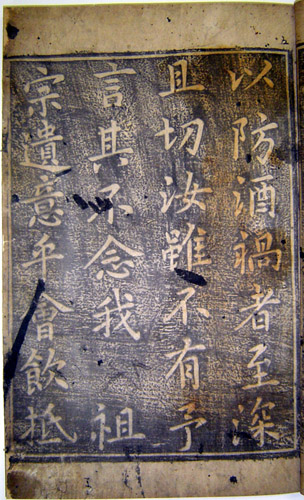 以防酒禍者至深
且切汝雖不有予
言其不念我 祖
宗遺意乎會飲抵